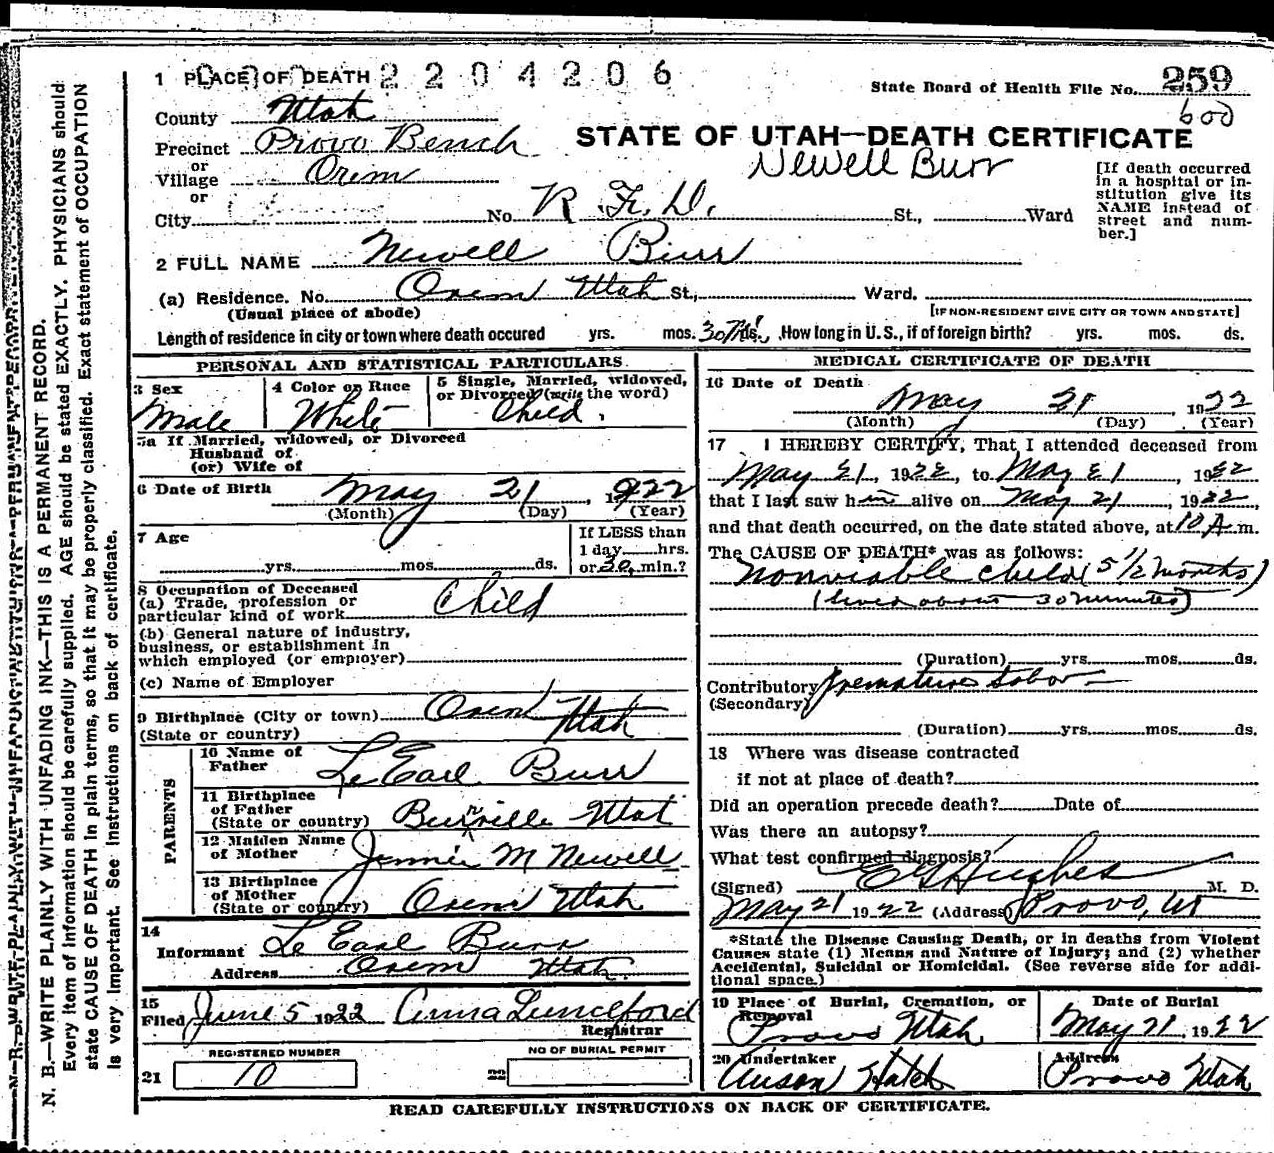 1 PLACE OF DEATH 2 2 0 4 2 0 6
State Board of Health File No. 259
600
County Utah
Precinct Provo Bench
or
Village Orem
or
City No R. F. D. St., Ward
STATE OF UTAH—DEATH CERTIFICATE
Newell Burr
[If death occurred
in a hospital or in-
stitution give its
NAME instead of
street and num-
ber.]
2 FULL NAME Newell Burr
(a) Residence. No. Orem Utah St., Ward.
(Usual place of abode)
[IF NON-RESIDENT GIVE CITY OR TOWN AND STATE]
Length of residence in city or town where death occured yrs. mos. ds. How long in U.S., if of foreign birth? yrs. mos. ds.
PERSONAL AND STATISTICAL PARTICULARS
3 Sex
Male
4 Color or Race
White
5 Single, Married, widowed,
or Divorced (write the word)
Child.
5a If Married, widowed, or Divorced
Husband of
(or) Wife of
6 Date of Birth May 21, 1922
(Month) (Day) (Year)
7 Age
yrs. mos. ds.
If LESS than
1 day hrs.
or 30 min.?
8 Occupation of Deceased
(a) Trade, profession or
particular kind of work Child
(b) General nature of industry,
business, or establishment in
which employed (or employer)
(c) Name of Employer
9 Birthplace (City or town) Orem
(State or country) Utah
PARENTS
10 Name of
Father Le Earl Burr
11 Birthplace
of Father
(State or country) Burrville Utah
12 Maiden Name
of Mother Jennie M Newell
13 Birthplace
of Mother
(State or country) Orem Utah
14
Informant Le Earl Burr
Address Orem Utah.
15
Filed June 5 1922 Anna Lunceford
Registrar
REGISTERED NUMBER
21 10
NO OF BURIAL PERMIT
22
MEDICAL CERTIFICATE OF DEATH
16 Date of Death
May 21, 1922
(Month) (Day) (Year)
17 I HEREBY CERTIFY, That I attended deceased from
May 21, 1922, to May 21, 1922
that I last saw him alive on May 21, 1922,
and that death occurred, on the date stated above, at 10 A.m.
The CAUSE OF DEATH* was as follows:
Nonviable child (5 1/2 months)
(lived about 30 minutes)
(Duration) yrs. mos. ds.
Contributory Premature labor
(Secondary)
(Duration) yrs. mos. ds.
18 Where was disease contracted
if not at place of death?
Did an operation precede death? Date of
Was there an autopsy?
What test confirmed diagnosis?
(Signed) E G Hughes M. D.
May 21 1922 (Address) Provo, Ut
*State the Disease Causing Death, or in deaths from Violent
Causes state (1) Means and Nature of Injury; and (2) whether
Accidental, Suicidal or Homicidal. (See reverse side for addi-
tional space.)
19 Place of Burial, Cremation, or
Removal
Provo Utah
Date of Burial
May 21 1922
20 Undertaker
Anson Hatch
Address
Provo Utah
READ CAREFULLY INSTRUCTIONS ON BACK OF CERTIFICATE.
N. B.—WRITE PLAINLY WITH UNFADING INK—THIS IS A PERMANENT RECORD.
Every item of information should be carefully supplied. AGE should be stated EXACTLY. PHYSICIANS should
state CAUSE OF DEATH in plain terms, so that it may be properly classified. Exact statement of OCCUPATION
is very important. See instructions on back of certificate.